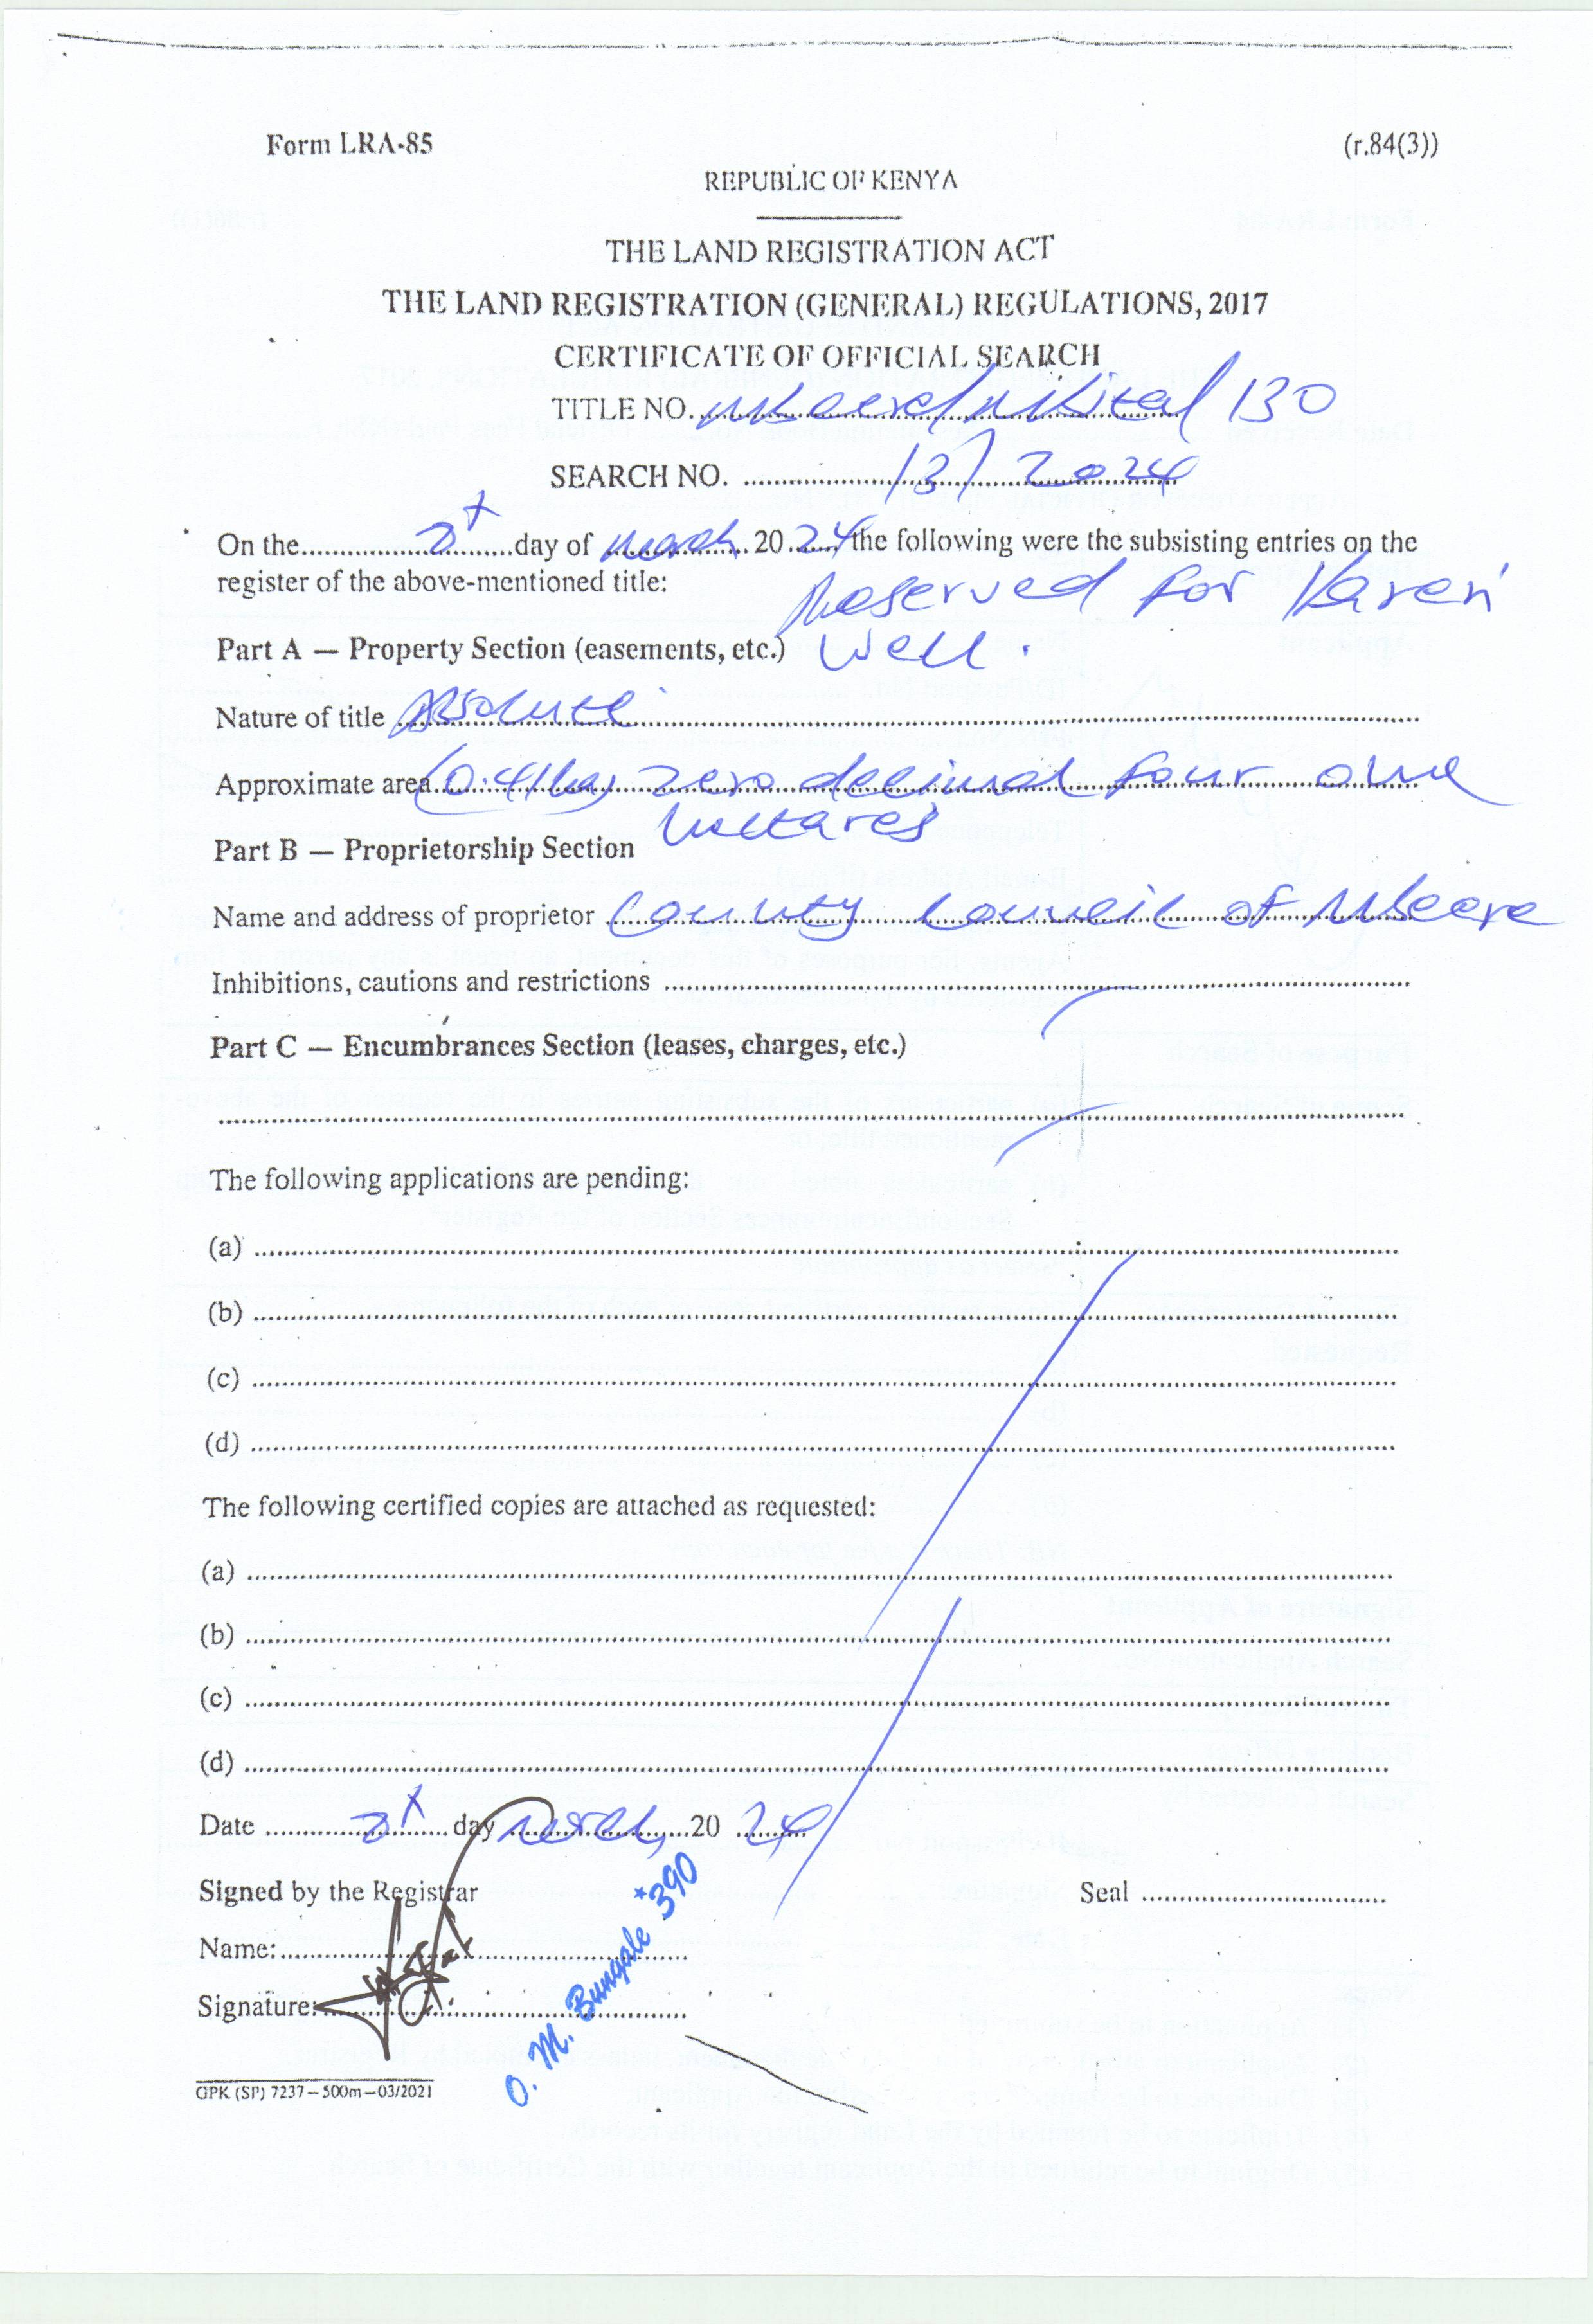 Form LRA-85 (r.84(3))
REPUBLIC OF KENYA
THE LAND REGISTRATION ACT
THE LAND REGISTRATION (GENERAL) REGULATIONS, 2017
CERTIFICATE OF OFFICIAL SEARCH
TITLE NO. 130
SEARCH NO. 13/2024
On the day of March 20 24 the following were the subsisting entries on the
register of the above-mentioned title:
Reserved for
Part A — Property Section (easements, etc.) Well.
Nature of title Absolute
Approximate area (0.41ha) zero decimal four one
hectares
Part B — Proprietorship Section
Name and address of proprietor County Council of Mbeere
Inhibitions, cautions and restrictions
Part C — Encumbrances Section (leases, charges, etc.)
The following applications are pending:
(a)
(b)
(c)
(d)
The following certified copies are attached as requested:
(a)
(b)
(c)
(d)
Date day March 20 24
Signed by the Registrar Seal
Name:
Signature:
O. M. Bungale *390
GPK (SP) 7237—500m—03/2021